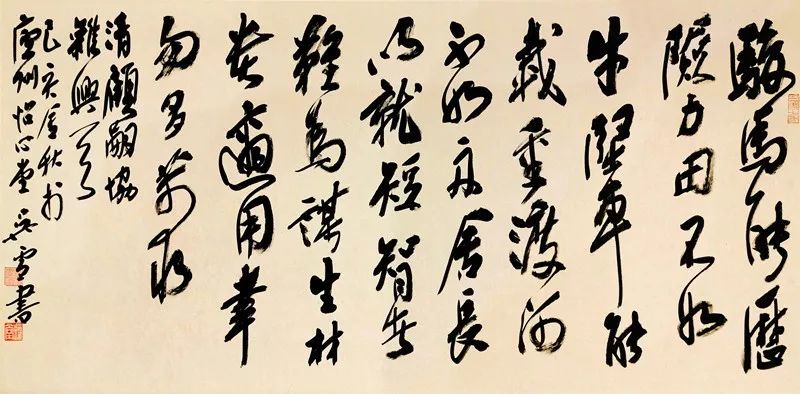 駿馬能歷
險力田不如
牛堅車能
載重渡河
不如舟舍長
以就短智者
難為謀生材
貴適用幸
勿多苛求
清顧嗣協
雜興
己亥金秋於
廬州怡心堂 吳雪書